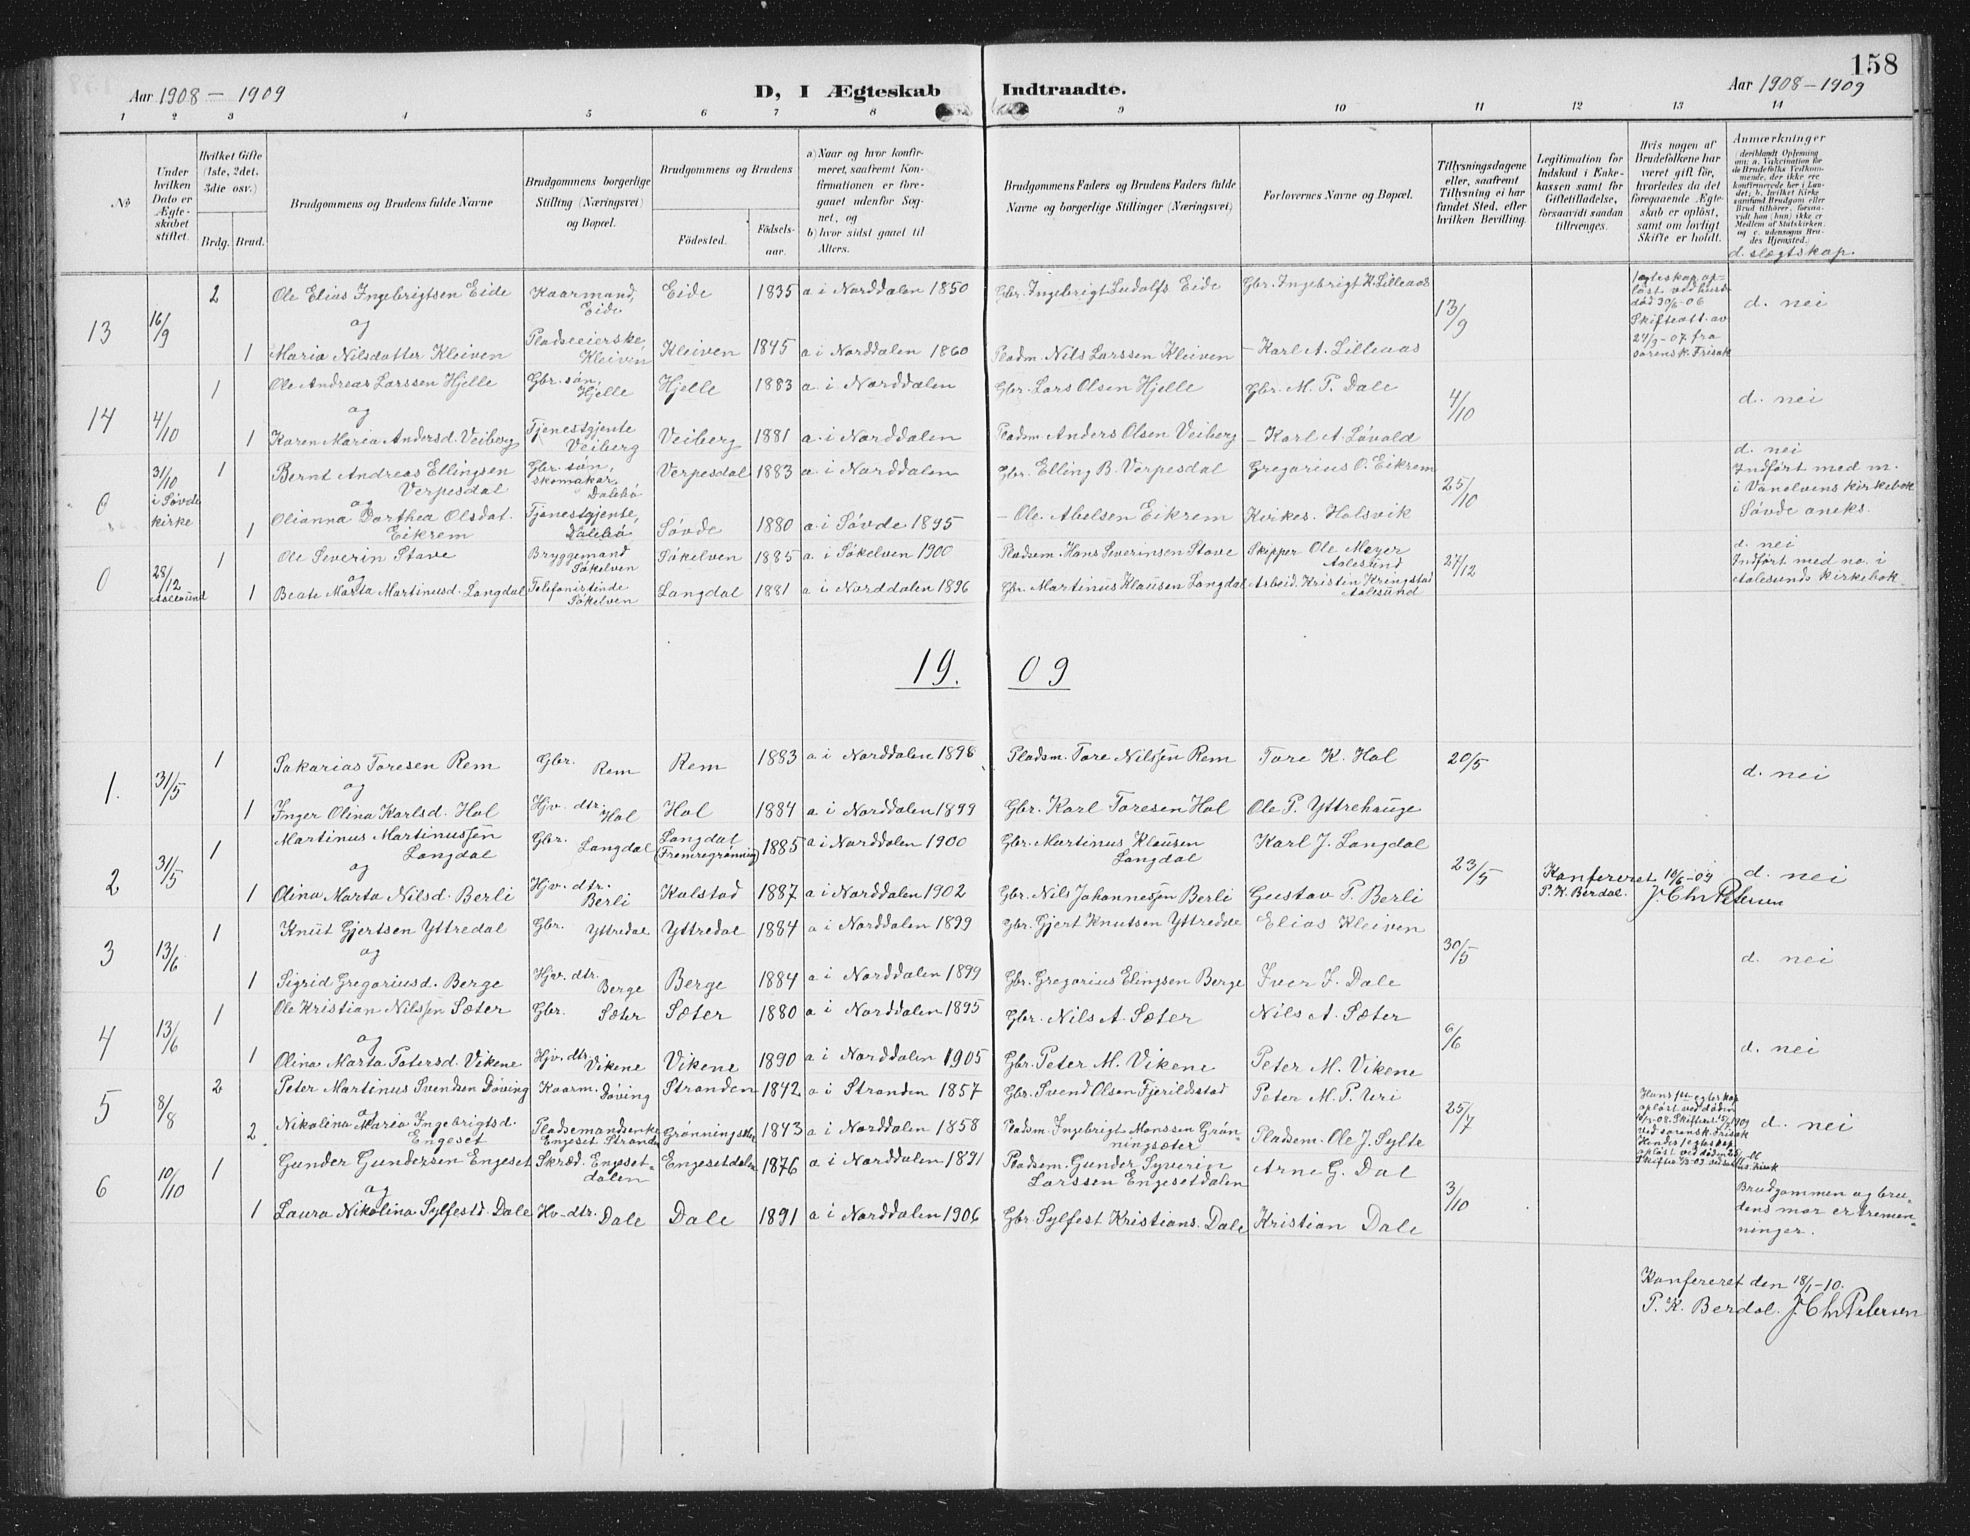 158
Aar 1908 – 1909
D, I Ægteskab Indtraadte.
Aar 1908 – 1909
1 2 3 4 5 6 7 8 9 10 11 12 13 14
No
Under hvilken Dato er Ægteskabet stiftet.
Hvilket Gifte (1ste, 2det, 3die osv.)
Brdg. Brud.
Brudgommens og Brudens fulde Navne
Brudgommens borgerlige Stilling (Næringsvei) og Bopæl.
Brudgommens og Brudens
Fødested.
Fødselsaar.
a) Naar og hvor konfirmeret, saafremt Konfirmationen er foregaaet udenfor Sognet, og
b) hvor sidst gaaet til Alters.
Brudgommens Faders og Brudens Faders fulde Navne og borgerlige Stillinger (Næringsvei)
Forlovernes Navne og Bopæl.
Tillysningsdagene eller, saafremt Tillysning ei har fundet Sted, efter hvilken Bevilling.
Legitimation for Indskud i Enkekassen samt for Giftetilladelse, forsaavidt saadan tiltrænges.
Hvis nogen af Brudefolkene har været gift før, hvorledes da det foregaaende Ægteskab er opløst, samt om lovligt Skifte er holdt.
Anmærkninger
(deriblandt Oplysning om: a. Vakcination for de Brudefolks Vedkommende, der ikke ere konfirmerede her i Landet; b. hvilket Kirkesamfund Brudgom eller Brud tilhører, forsaavidt han (hun) ikke er Medlem af Statskirken, og c. udensogns Brudes Hjemsted.)
d. slegtskap.
13 16/9 2 Ole Elias Ingebrigtsen Eide Kaarmand, Eide Eide 1835 a i Norddalen 1850 Gbr. Ingebrigt Ludolfs. Eide Gbr. Ingebrigt K. Lilleaas 13/9 d. nei
og
1 Maria Nilsdatter Kleiven Pladseeierske, Kleiven Kleiven 1845 a i Norddalen 1860 Pladsm. Nils Larssen Kleiven – Karl A. Lilleaas
løst ved hust. død 30/6-06 Skifteatt. av 27/9-07 fra sorensk. Frisak
14 4/10 1 Ole Andreas Larssen Hjelle Gbr. søn, Hjelle Hjelle 1883 a. i Norddalen Gbr. Lars Olsen Hjelle Gbr. M. P. Dale 4/10 d. nei
og
1 Karen Maria Andersd. Veiberg Tjenestgjente Veiberg Veiberg 1881 a. i Norddalen Pladsm Anders Olsen Veiberg – Karl A. Løvold
0 31/10 i Søvde kirke 1 Bernt Andreas Ellingsen Verpesdal Gbr. søn, skomakar, Dalebø Verpesdal 1883 a. i Norddalen Gbr. Elling B. Verpesdal Gregorius O. Eikrem 25/10 d. nei
og
1 Olianna Dorthea Olsdat. Eikrem Tjenestgjente, Dalebø Søvde 1880 a. i Søvde 1895 – Ole Abelsen Eikrem Kirkes. Holsvik
Indført med nr. i Vanelvens kirkebok Søvde aneks.
0 28/12 Aalesund 1 Ole Severin Stave Bryggemand Søkelven Søkelven 1885 a. i Søkelven 1900 Pladsm. Hans Severinsen Stave Skipper Ole Meyer Aalesund 27/12 d. nei
og
1 Beate Marta Martinusd. Langdal Telefonistinde Søkelven Langdal 1881 a i Norddalen 1896 Gbr. Martinus Klausen Langdal Arbeid. Kristen Krengstad Aalesund
Indført med no. i Aalesunds kirkebok.
19. 09
1. 31/5 1 Sakarias Toresen Rem Gbr. Rem Rem 1883 a i Norddalen 1898 Pladsm. Tore Nilssen Rem Tore K. Hol 20/5 d. nei
og
1 Inger Olina Karlsd. Hol Hjv. dtr. Hol Hol 1884 a i Norddalen 1899 Gbr. Karl Toresen Hol Ole P. Yttrehauge
2 31/5 1 Martinus Martinussen Langdal Gbr. Langdal Langdal (Fremregrønning) 1885 a i Norddalen 1900 Gbr. Martinus Klausen Langdal Karl J. Langdal 23/5 d. nei
og
1 Olina Marta Nilsd. Berli Hjv. dtr. Berli Kalstad 1887 a i Norddalen 1902 Gbr. Nils Johannessen Berli Gustav P. Berli
Konfereret 10/6-09 P. K. Berdal. J. Chr Petersen
3 13/6 1 Knut Gjertsen Yttredal Gbr. Yttredal Yttredal 1884 a i Norddalen 1899 Gbr. Gjert Knutsen Yttredal Elias Kleiven 30/5 d. nei
og
1 Sigrid Gregoriusd. Berge Hjv. dtr. Berge Berge 1884 a i Norddalen 1899 Gbr. Gregorius Elingsen Berge Iver J. Dale
4 13/6 1 Ole Kristian Nilssen Sæter Gbr. Sæter Sæter 1880 a i Norddalen 1895 Gbr. Nils A. Sæter Nils A. Sæter 6/6 d. nei
og
1 Olina Marta Petersd. Vikene Hjv. dtr. Vikene Vikene 1890 a i Norddalen 1905 Gbr. Peter M. Vikene Peter M. Vikene
5 8/8 2 Peter Martinus Svendsen Døving Kaarm. Døving Stranden 1842 a i Stranden 1857 Gbr. Svend Olsen Fjerildstad Peter M. P. Uri 25/7 d. nei
og
2. Nikolina Maria Ingebrigtsd. Engeset Pladsemandsenke Engeset Stranda Grønningsæter 1843 a i Norddalen 1858 Pladsm. Ingebrigt Monssen Grønningsæter Pladsem. Ole J. Sylte
6 10/10 1 Gunder Gundersen Engeset Skræd. Engesetdalen Engesetdalen 1876 a i Norddalen 1891 Pladsem. Gunder Syverin Larssen Engesetdalen Arne G. Dal 3/10
og
1 Laura Nikolina Sylfestd. Dale Hv-dtr. Dale Dale 1891 a i Norddalen 1906 Gbr. Sylfest Kristians. Dale Kristian Dale
Brudgommen og brudens mor er tremenninger.
Konfereret den 18/1-10.
P. K. Berdal. J. Chr Petersen